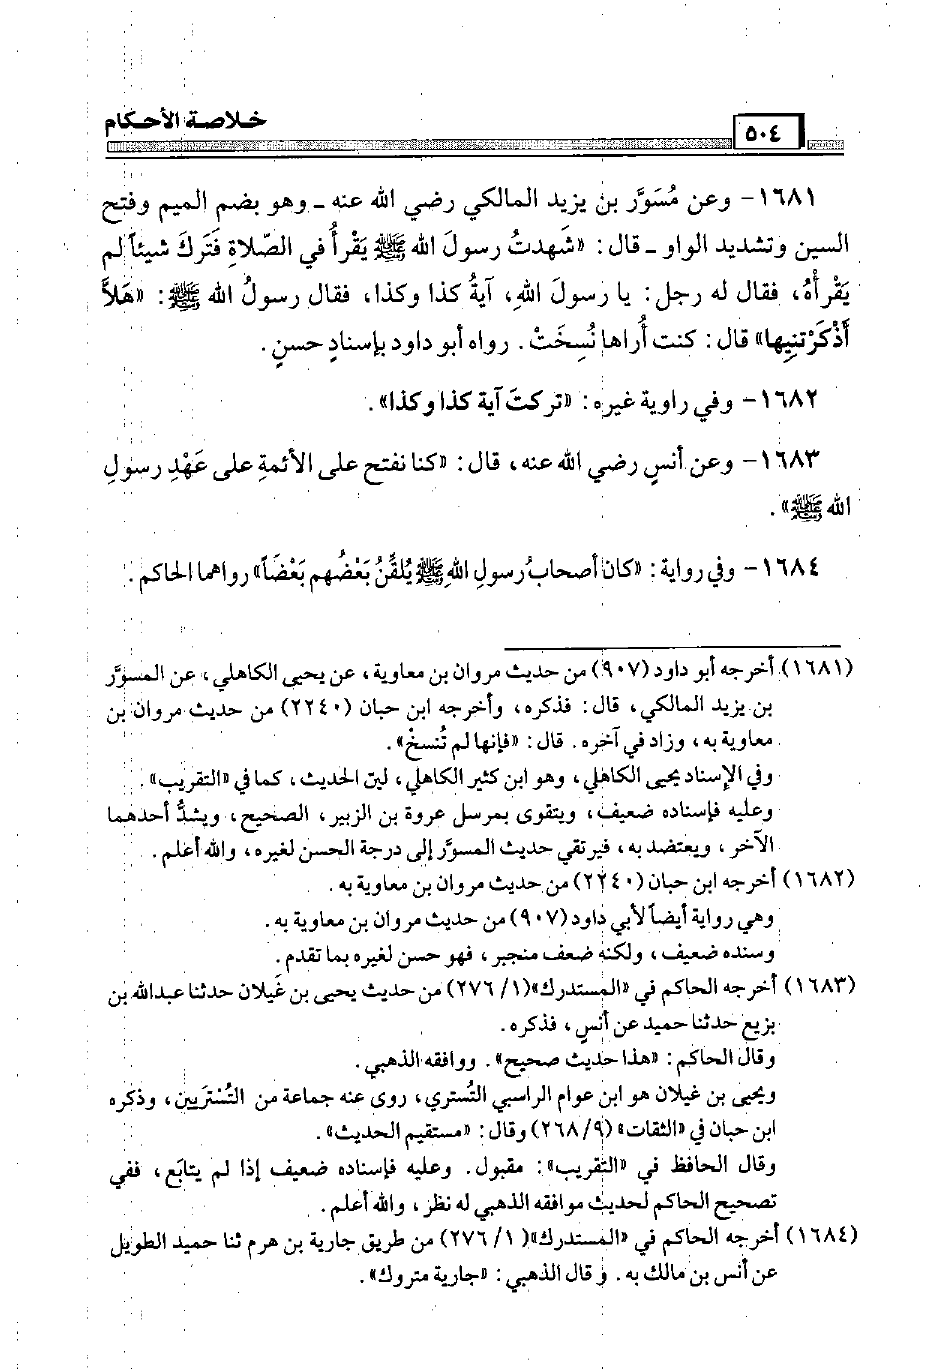 خلاصة الأحكام
٥٠٤
١٦٨١- وعن مُسَوَّر بن يزيد المالكي رضي الله عنه ـ وهو بضم الميم وفتح
السين وتشديد الواو ـ قال: «شَهدتُ رسولَ الله ﷺ يَقْرأُ في الصّلاةِ فَتَركَ شيئاً لم
يَقْرأْهُ، فقال له رجل: يا رسولَ اللهِ، آيةُ كذا وكذا، فقال رسولُ الله ﷺ: «هَلاَّ
أَذْكَرْتنِيها» قال: كنت أُراها نُسخَتْ. رواه أبو داود بإسنادٍ حسنٍ.
١٦٨٢- وفي راوية غيره: «تركتَ آية كذا وكذا».
١٦٨٣- وعن أنسٍ رضي الله عنه، قال: «كنا نفتح على الأئمةِ على عَهْدِ رسولِ
الله ﷺ».
١٦٨٤- وفي رواية: «كان أصحابُ رسولِ اللهِ ﷺ يُلقِّنُ بَعْضُهم بَعْضَاً» رواهما الحاكم.
(١٦٨١) أخرجه أبو داود (٩٠٧) من حديث مروان بن معاوية، عن يحيى الكاهلي، عن المسوَّر
بن يزيد المالكي، قال: فذكره، وأخرجه ابن حبان (٢٢٤٠) من حديث مروان بن
معاوية به، وزاد في آخره. قال: «فإنها لم تُنسخْ».
وفي الإسناد يحيى الكاهلي، وهو ابن كثير الكاهلي، لينّ الحديث، كما في «التقريب».
وعليه فإسناده ضعيف، ويتقوى بمرسل عروة بن الزبير، الصحيح، ويشدُّ أحدهما
الآخر، ويعتضد به، فيرتقي حديث المسوَّر إلى درجة الحسن لغيره، والله أعلم.
(١٦٨٢) أخرجه ابن حبان (٢٢٤٠) من حديث مروان بن معاوية به.
وهي رواية أيضاً لأبي داود (٩٠٧) من حديث مروان بن معاوية به.
وسنده ضعيف، ولكنه ضعف منجبر، فهو حسن لغيره بما تقدم.
(١٦٨٣) أخرجه الحاكم في «المستدرك» (١/ ٢٧٦) من حديث يحيى بن غَيلان حدثنا عبدالله بن
بزيع حدثنا حميد عن أنسٍ، فذكره.
وقال الحاكم: «هذا حديث صحيح». ووافقه الذهبي.
ويحيى بن غيلان هو ابن عوام الراسبي التُستري، روى عنه جماعة من التُسْتَريين، وذكره
ابن حبان في «الثقات» (٢٦٨/٩) وقال: «مستقيم الحديث».
وقال الحافظ في «التقريب»: مقبول. وعليه فإسناده ضعيف إذا لم يتابَع، ففي
تصحيح الحاكم لحديث موافقه الذهبي له نظر، والله أعلم.
(١٦٨٤) أخرجه الحاكم في «المستدرك» (١/ ٢٧٦) من طريق جارية بن هرم ثنا حميد الطويل
عن أنس بن مالك به. وقال الذهبي: «جارية متروك».